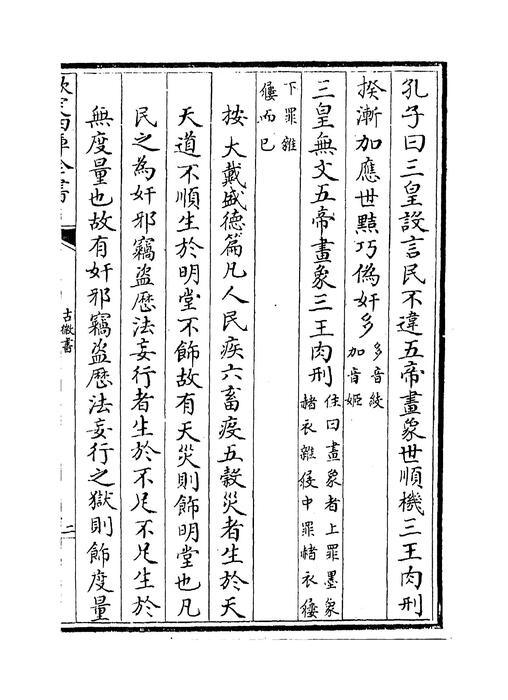 孔子曰三皇設言民不違五帝畫象世順機三王肉刑
揆漸加應世黠巧偽奸多
多音紋
加音姬
三皇無文五帝畫象三王肉刑
住曰畫象者上罪墨象
赭衣雜屨中罪赭衣屨
下罪雜
屨而已
按大戴盛德篇凡人民疾六畜疫五穀災者生於天
天道不順生於明堂不飾故有天災則飾明堂也凡
民之為奸邪竊盜厯法妄行者生於不足不足生於
無度量也故有奸邪竊盜厯法妄行之獄則飾度量
欽定四庫全書
古微書
二